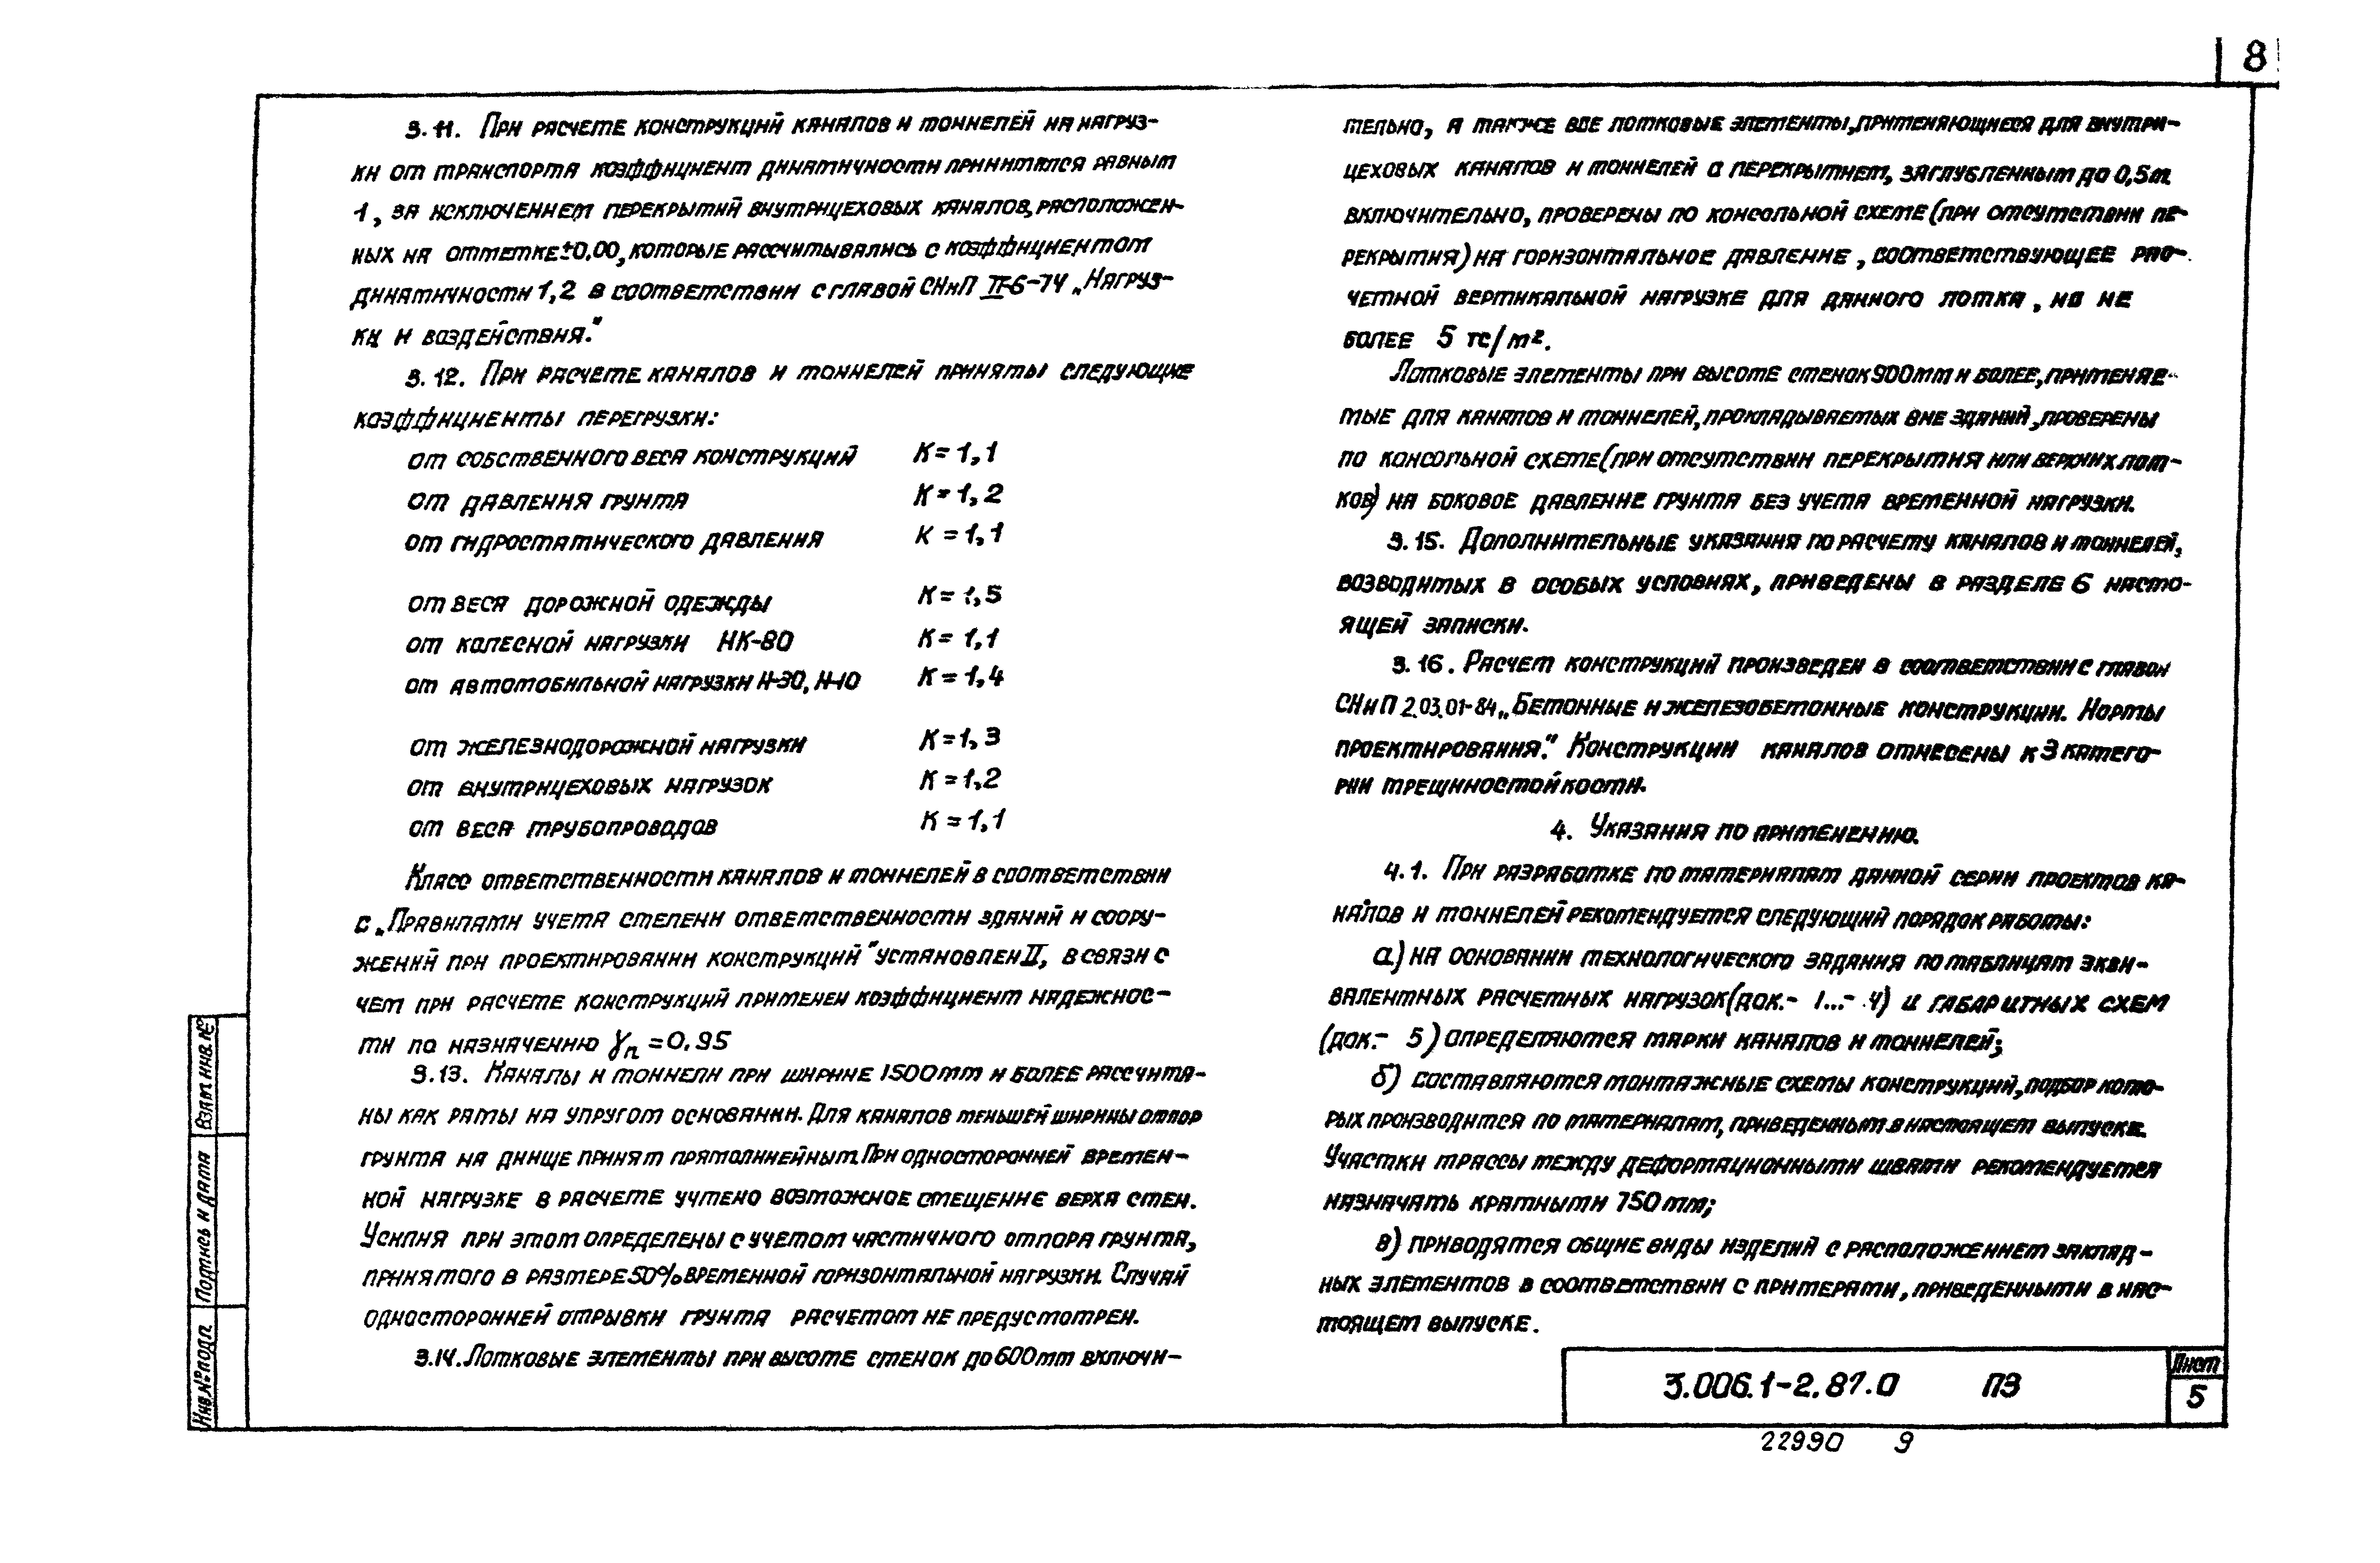 8
3.11. При расчете конструкций каналов и тоннелей на нагруз-
ки от транспорта коэффициент динамичности принимался равным
1, за исключением перекрытий внутрицеховых каналов, расположен-
ных на отметке ±0.00, которые рассчитывались с коэффициентом
динамичности 1,2 в соответствии с главой СНиП II-6-74 „Нагруз-
ки и воздействия."
3.12. При расчете каналов и тоннелей приняты следующие
коэффициенты перегрузки:
от собственного веса конструкций К=1,1
от давления грунта К=1,2
от гидростатического давления К=1,1
от веса дорожной одежды К=1,5
от колесной нагрузки НК-80 К=1,1
от автомобильной нагрузки Н-30, Н-10 К=1,4
от железнодорожной нагрузки К=1,3
от внутрицеховых нагрузок К=1,2
от веса трубопроводов К=1,1
Класс ответственности каналов и тоннелей в соответствии
с „Правилами учета степени ответственности зданий и соору-
жений при проектировании конструкций" установлен II, в связи с
чем при расчете конструкций применен коэффициент надежнос-
ти по назначению γn=0.95
3.13. Каналы и тоннели при ширине 1500мм и более рассчита-
ны как рамы на упругом основании. Для каналов меньшей ширины отпор
грунта на днище принят прямолинейным. При односторонней времен-
ной нагрузке в расчете учтено возможное смещение верха стен.
Усилия при этом определены с учетом частичного отпора грунта,
принятого в размере 50% временной горизонтальной нагрузки. Случай
односторонней отрывки грунта расчетом не предусмотрен.
3.14. Лотковые элементы при высоте стенок до 600мм включи-
тельно, а также все лотковые элементы, применяющиеся для внутри-
цеховых каналов и тоннелей с перекрытием, заглубленным до 0,5м
включительно, проверены по консольной схеме (при отсутствии пе-
рекрытия) на горизонтальное давление, соответствующее рас-
четной вертикальной нагрузке для данного лотка, но не
более 5 тс/м².
Лотковые элементы при высоте стенок 900мм и более, применяе-
мые для каналов и тоннелей, прокладываемых вне зданий, проверены
по консольной схеме (при отсутствии перекрытия или верхних лот-
ков) на боковое давление грунта без учета временной нагрузки.
3.15. Дополнительные указания по расчету каналов и тоннелей,
возводимых в особых условиях, приведены в разделе 6 насто-
ящей записки.
3.16. Расчет конструкций произведен в соответствии с главой
СНиП 2.03.01-84 „Бетонные и железобетонные конструкции. Нормы
проектирования." Конструкции каналов отнесены к 3 катего-
рии трещиностойкости.
4. Указания по применению.
4.1. При разработке по материалам данной серии проектов ка-
налов и тоннелей рекомендуется следующий порядок работы:
а) на основании технологического задания по таблицам экви-
валентных расчетных нагрузок (док.- 1...- 4) и габаритных схем
(док.- 5) определяются марки каналов и тоннелей;
б) составляются монтажные схемы конструкций, подбор кото-
рых производится по материалам, приведенным в настоящем выпуске.
Участки трассы между деформационными швами рекомендуется
назначать кратными 750мм;
в) приводятся общие виды изделий с расположением заклад-
ных элементов в соответствии с примерами, приведенными в нас-
тоящем выпуске.
Взам. инв. №
Подпись и дата
Инв.№ подл.
3.006.1-2.87.0 ПЗ
Лист
5
22990 9